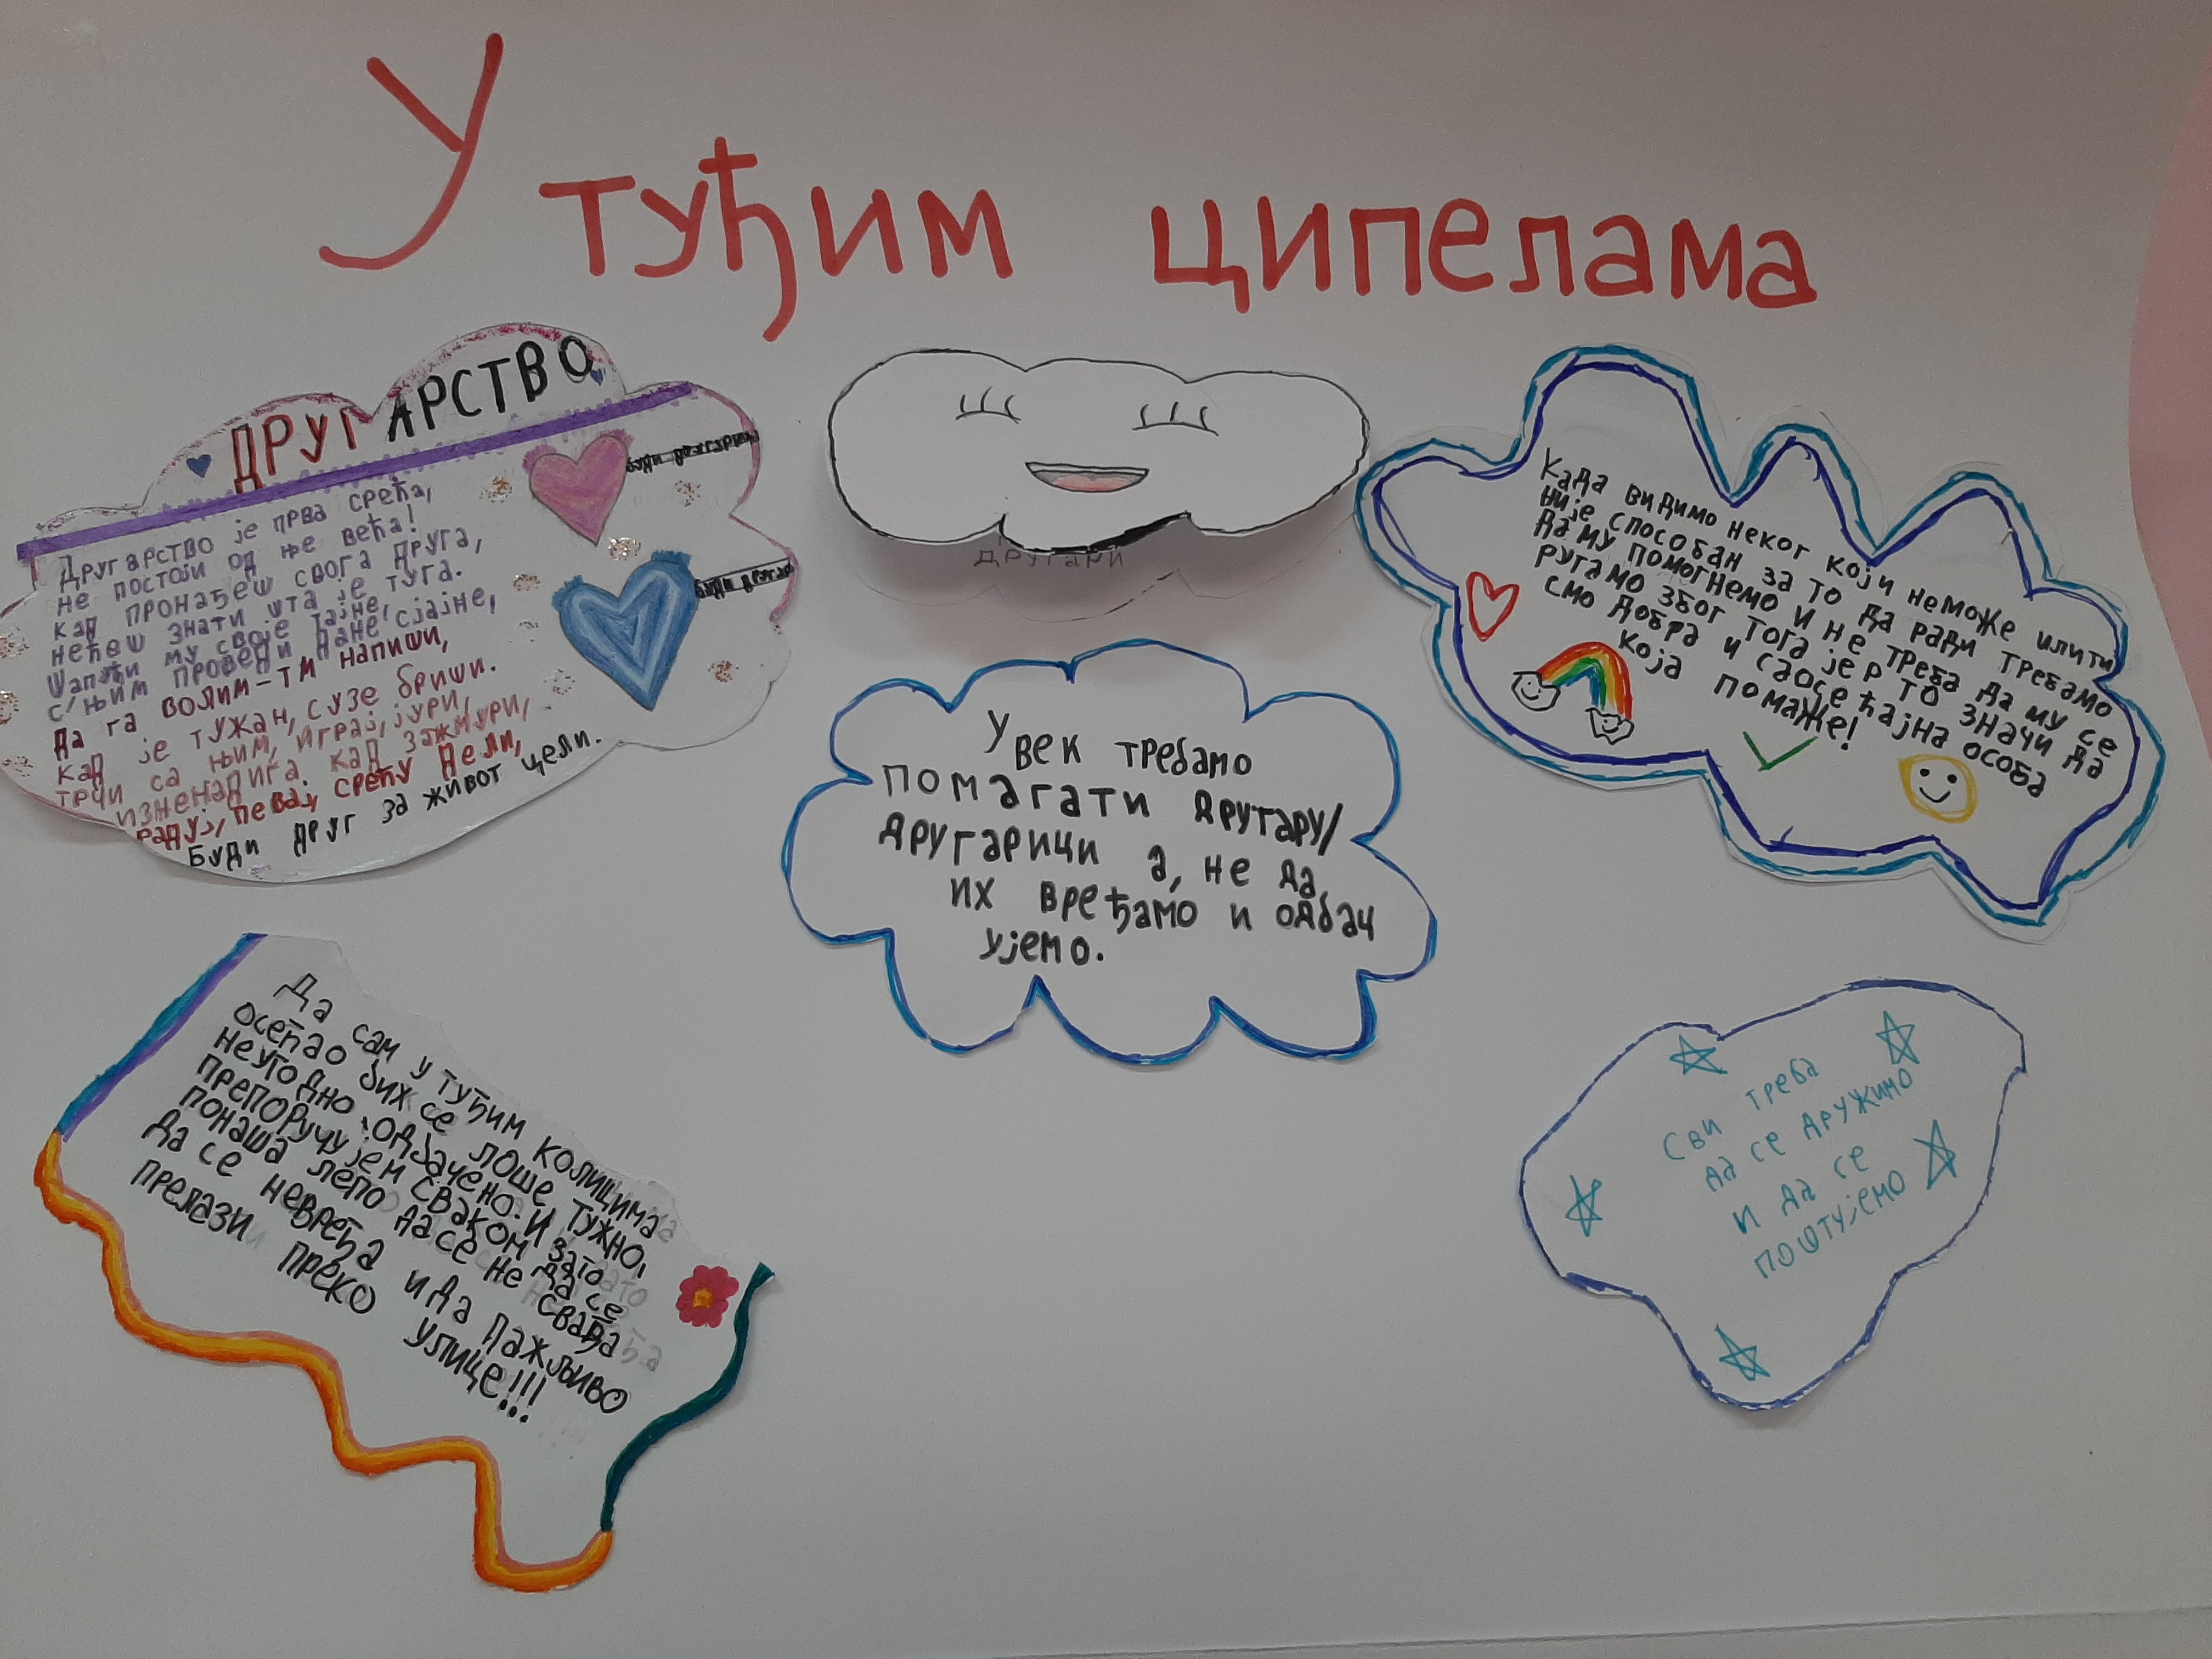 У туђим ципелама
ДРУГАРСТВО
Другарство је прва срећа,
не постоји од ње већа!
кад пронађеш свога друга,
нећеш знати шта је туга.
Шапући му своје тајне,
с'њим проведи дане сјајне,
да га волим-ти напиши,
кад је тужан, сузе бриши.
трчи са њим, играј, јури,
изненади га кад зажмури,
радуј, певај, срећу дели,
Буди друг за живот цели.
буди
буди другар
другари
Када видимо неког који неможе илити
није способан за то да ради требамо
да му помогнемо и не треба да му се
ругамо због тога јер то значи да
смо добра и саосећајна особа
која помаже!
Увек требамо
помагати другару/
другарици а, не да
их вређамо и одбач
ујемо.
Да сам у туђим колицима
осећао бих се лоше, тужно,
неугодно, одбачено. И зато
препоручујем сваком да се
понаша лепо да се не свађа
да се невређа и да пажљиво
прелази преко улице!!!
Сви треба
да се дружимо
и да се
поштујемо